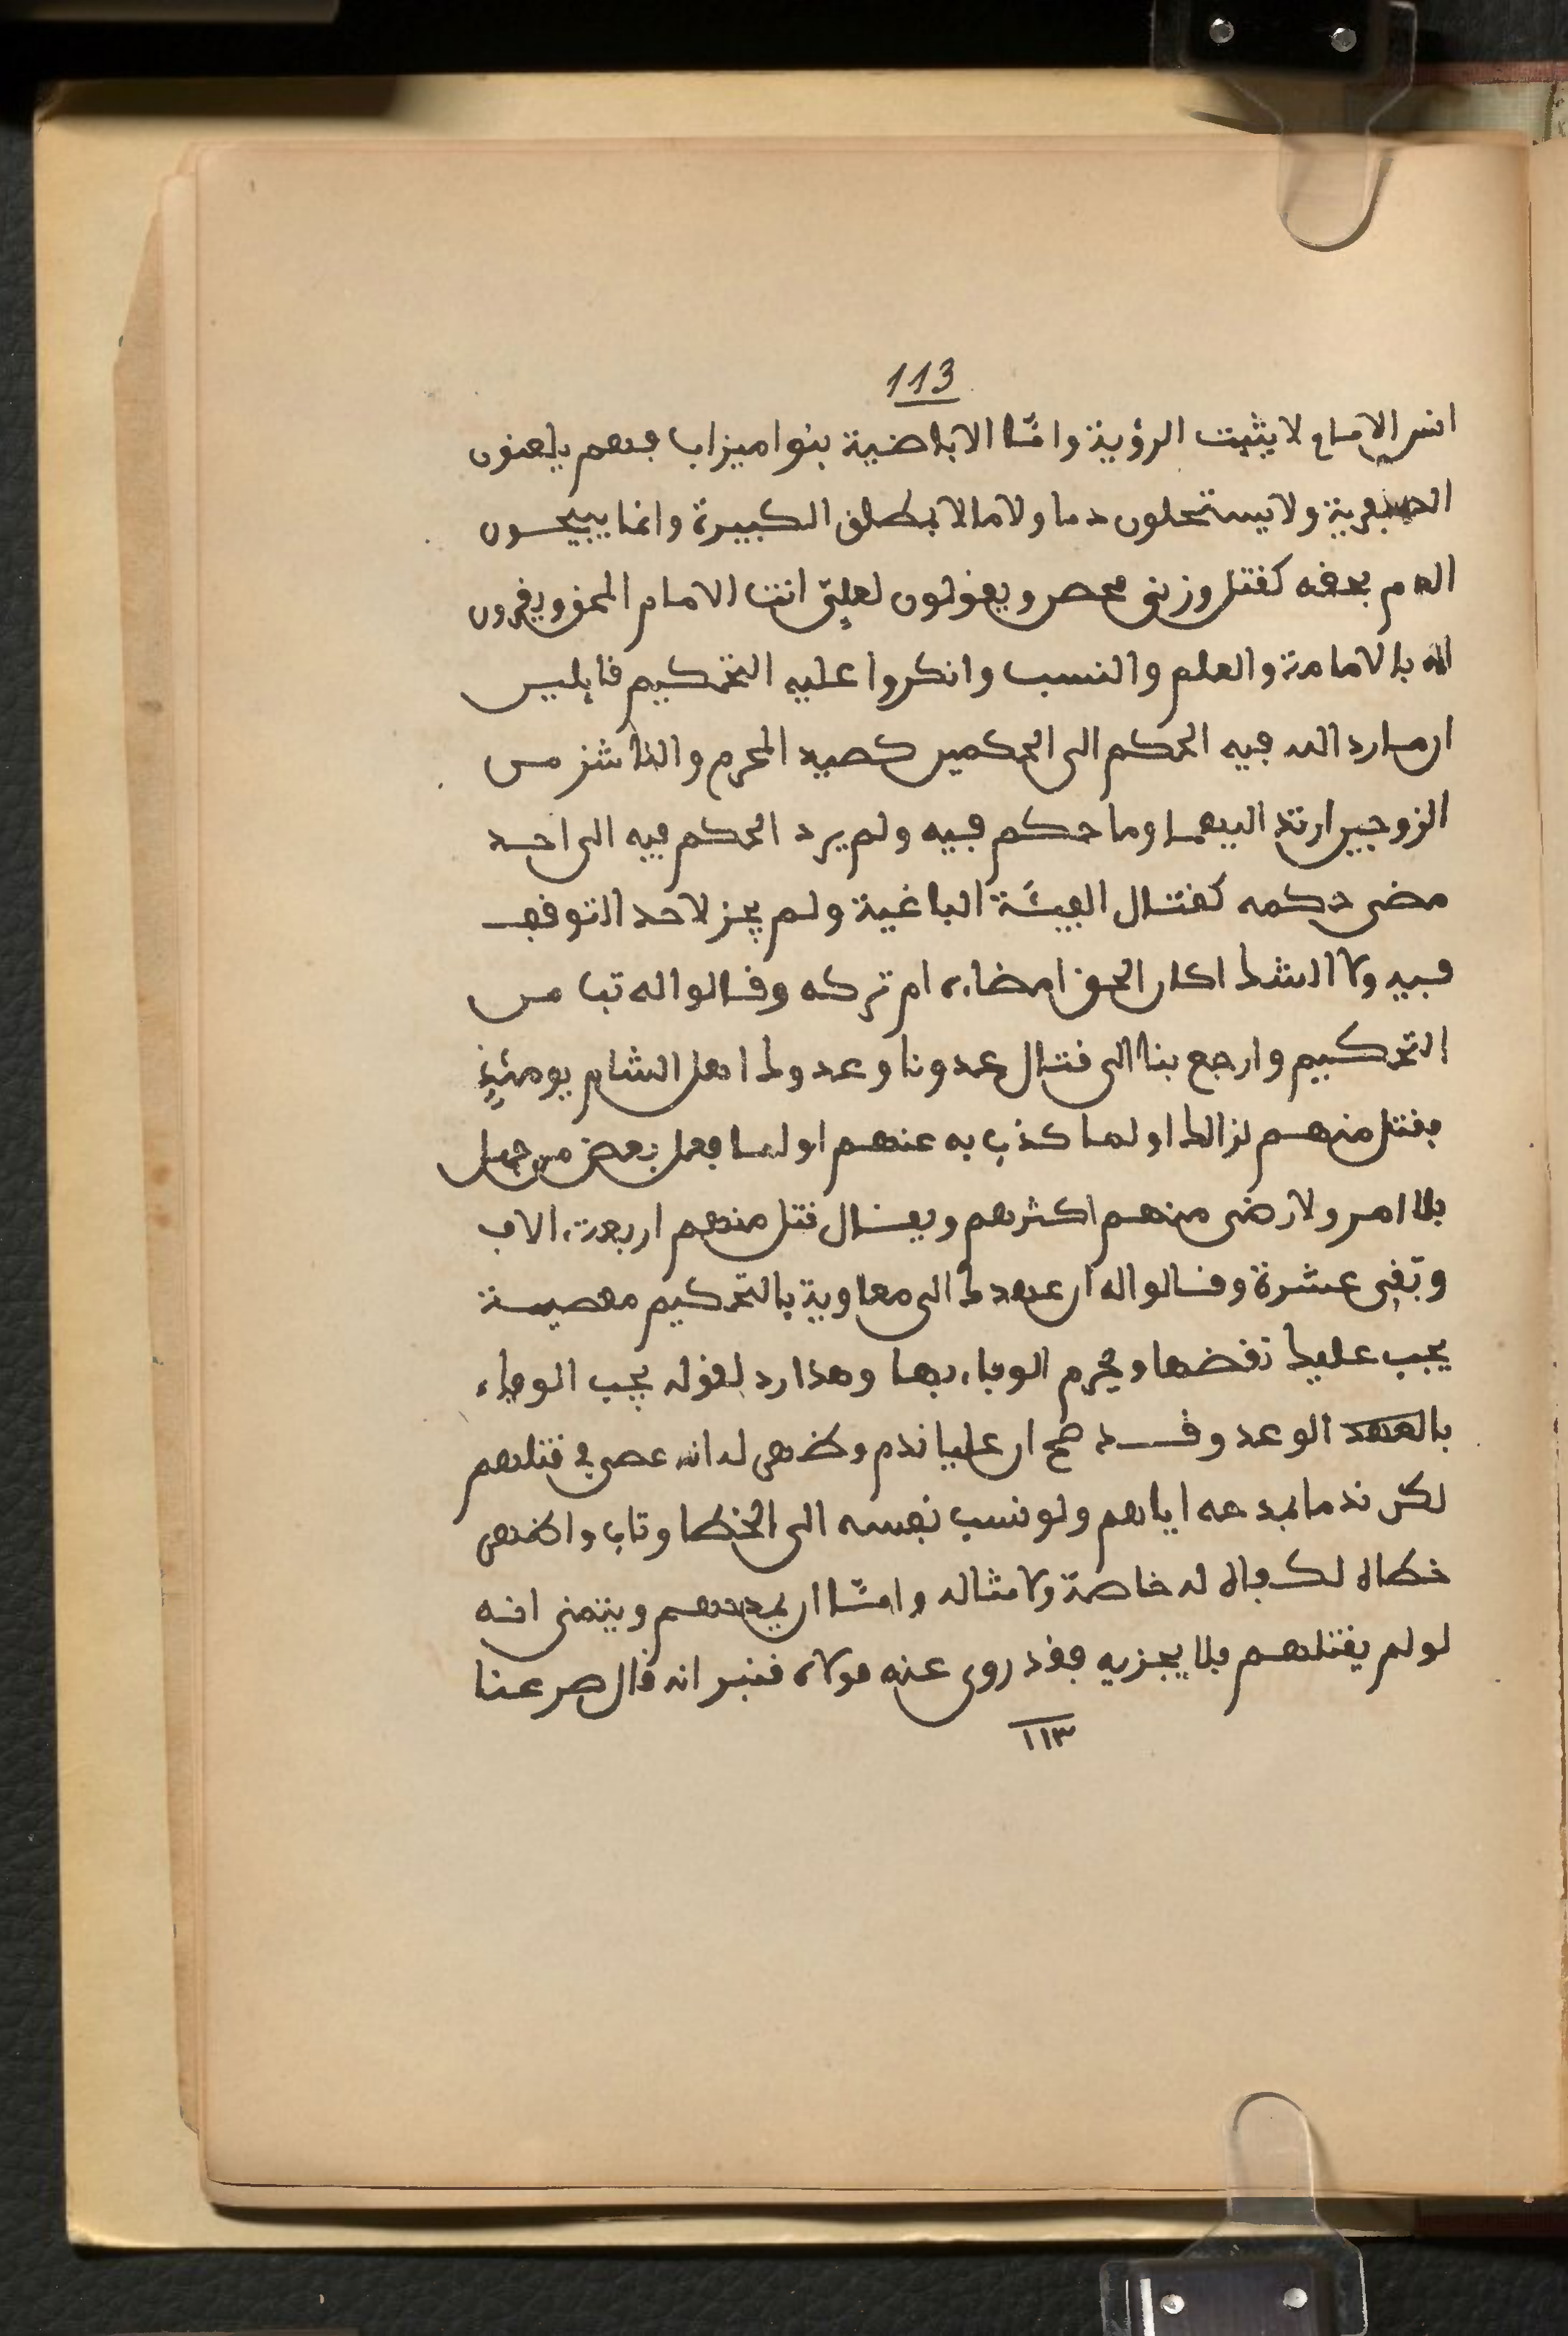 113
انس الامام لا يثبت الرؤية وامّا الاباضية بنوا ميزاب فهم يلعنون
الصفرية ولا يستحلون دما ولا مالا بمطلق الكبيرة وانما يبيحون
الدم بحقه كقتل وزنى محصن ويقولون لعليّ انت الامام المحق ويقرون
له بالامامة والعلم والنسب وانكروا عليه التحكيم قايلين
ان ما رد الله فيه الحكم الى الحكمين كصيد المحرم والناشز من
الزوجين ارتد اليهما وما حكم فيه ولم يرد الحكم فيه الى احد
مضى حكمه كقتال الفيئة الباغية ولم يجز لاحد التوقف
فيه ولا الشك اكان الحق امضاءه ام تركه وقالوا له تب من
التحكيم وارجع بنا الى قتال عدونا وعدوك اهل الشام يومئذٍ
فقتل منهم لذالك او لما كذب به عنهم او لما فعل بعض من جهل
بلا امر ولا رضى منهم اكثرهم ويقال قتل منهم اربعة الاف
وبقى عشرة وقالوا له ان عهدك الى معاوية بالتحكيم معصية
يجب عليك نقضها ويحرم الوفاء بها وهذا رد لقوله يجب الوفاء
بالعهد الوعد وقد صح ان عليا ندم وظهر له انه عصى في قتلهم
لكن ندما مدحه اياهم ولو نسب نفسه الى الخطا وتاب واظهر
خطاه لكفاه له خاصة ولامثاله وامّا ان يمدحهم ويتمنى انه
لو لم يقتلهم فلا يجزيه فقد روى عنه مولاه قنبر انه قال مر عنا
١١٣